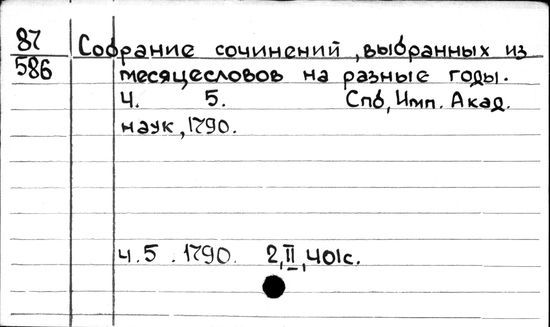 87
586
Собрание сочинений, выбранных из
месяцесловов на разные годы.
Ч. 5. Спб, Имп. Акад.
наук, 1790.
ч. 5. 1790. 2, II, 401с.